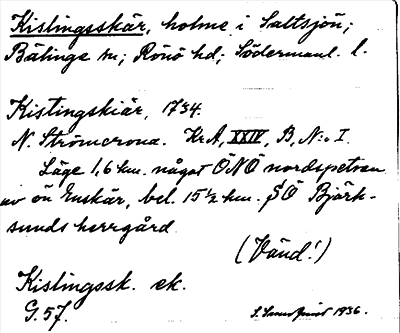 Kistingsskär, holme i Saltsjön;
Bälinge sn; Rönö hd; Södermanl. l.
Kistingskiär, 1734.
N. Strömcrona. Kr.A, XXIV, B, N:o I.
Läge 1,6 km. något ÖNÖ nordspetsen
av ön Enskär, bel. 15½ km. SÖ Björk-
sunds herrgård
(Vänd!)
Kistingssk. ek.
G. 57.
1936.